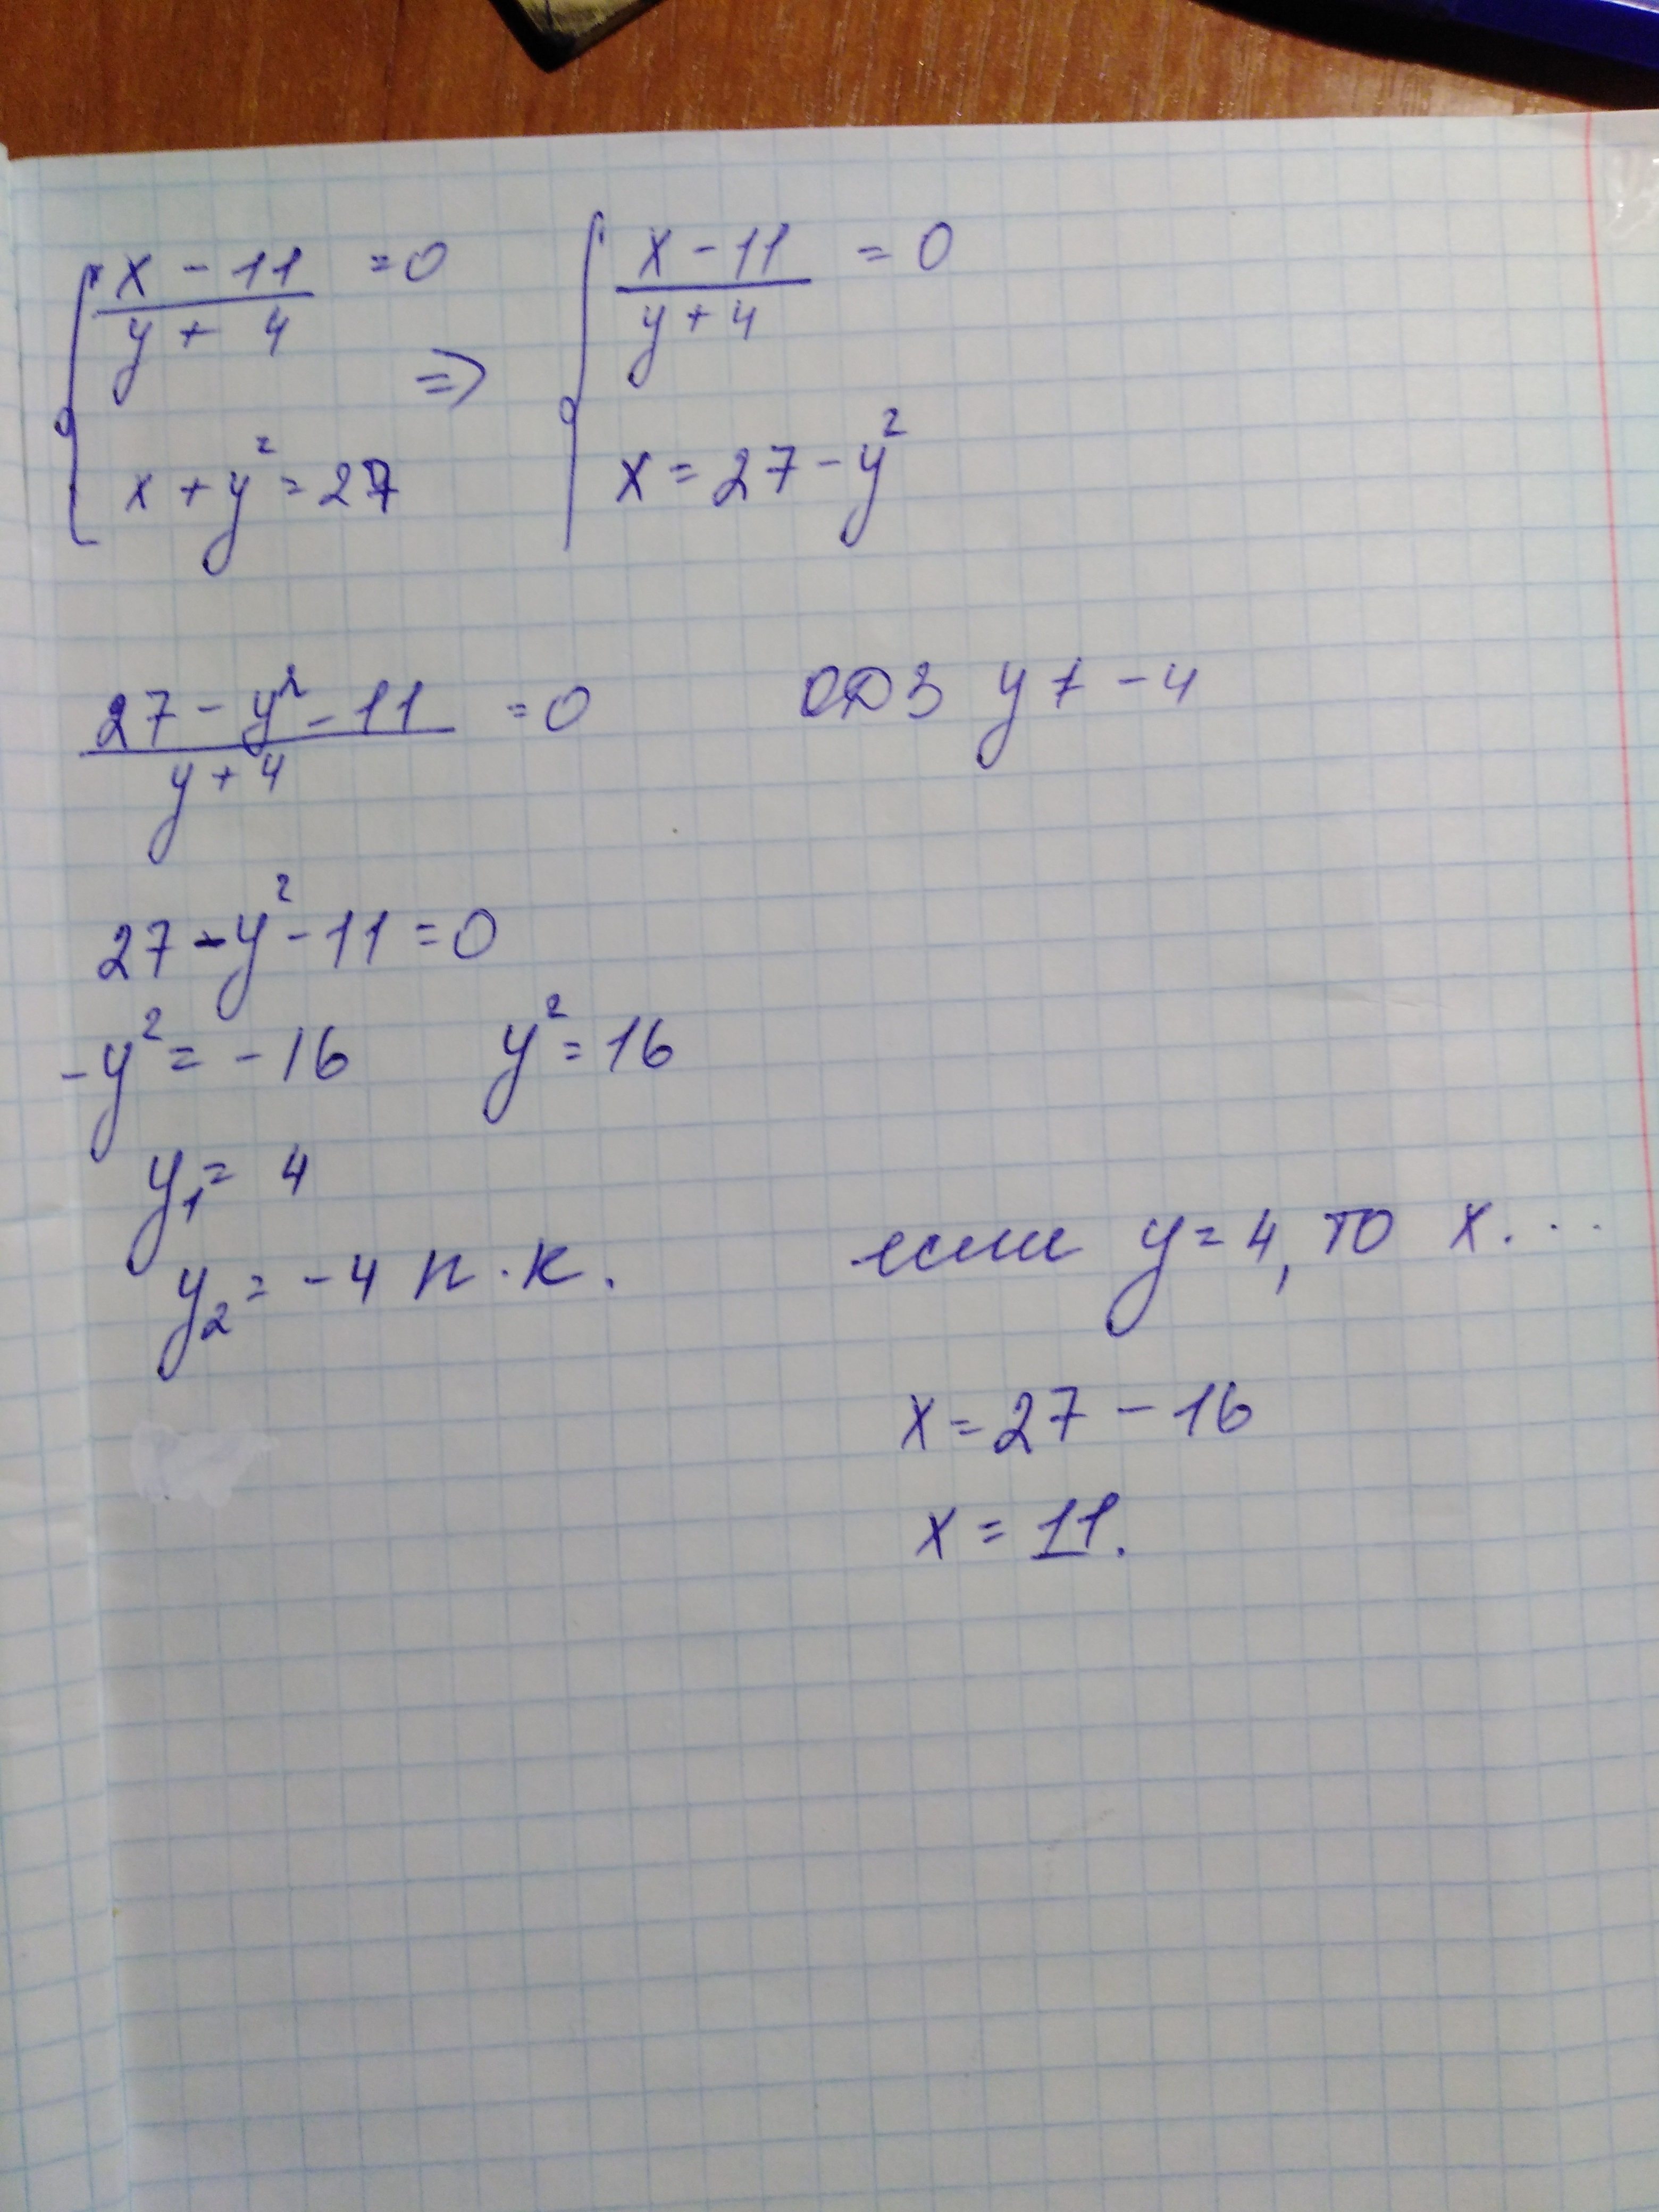 { (x - 11)/(y + 4) = 0 => { (x - 11)/(y + 4) = 0
x + y² = 27 x = 27 - y²
(27 - y² - 11)/(y + 4) = 0 ОДЗ y ≠ -4
27 - y² - 11 = 0
-y² = -16 y² = 16
y₁ = 4
y₂ = -4 п.к. если y = 4, то x...
x = 27 - 16
x = 11.